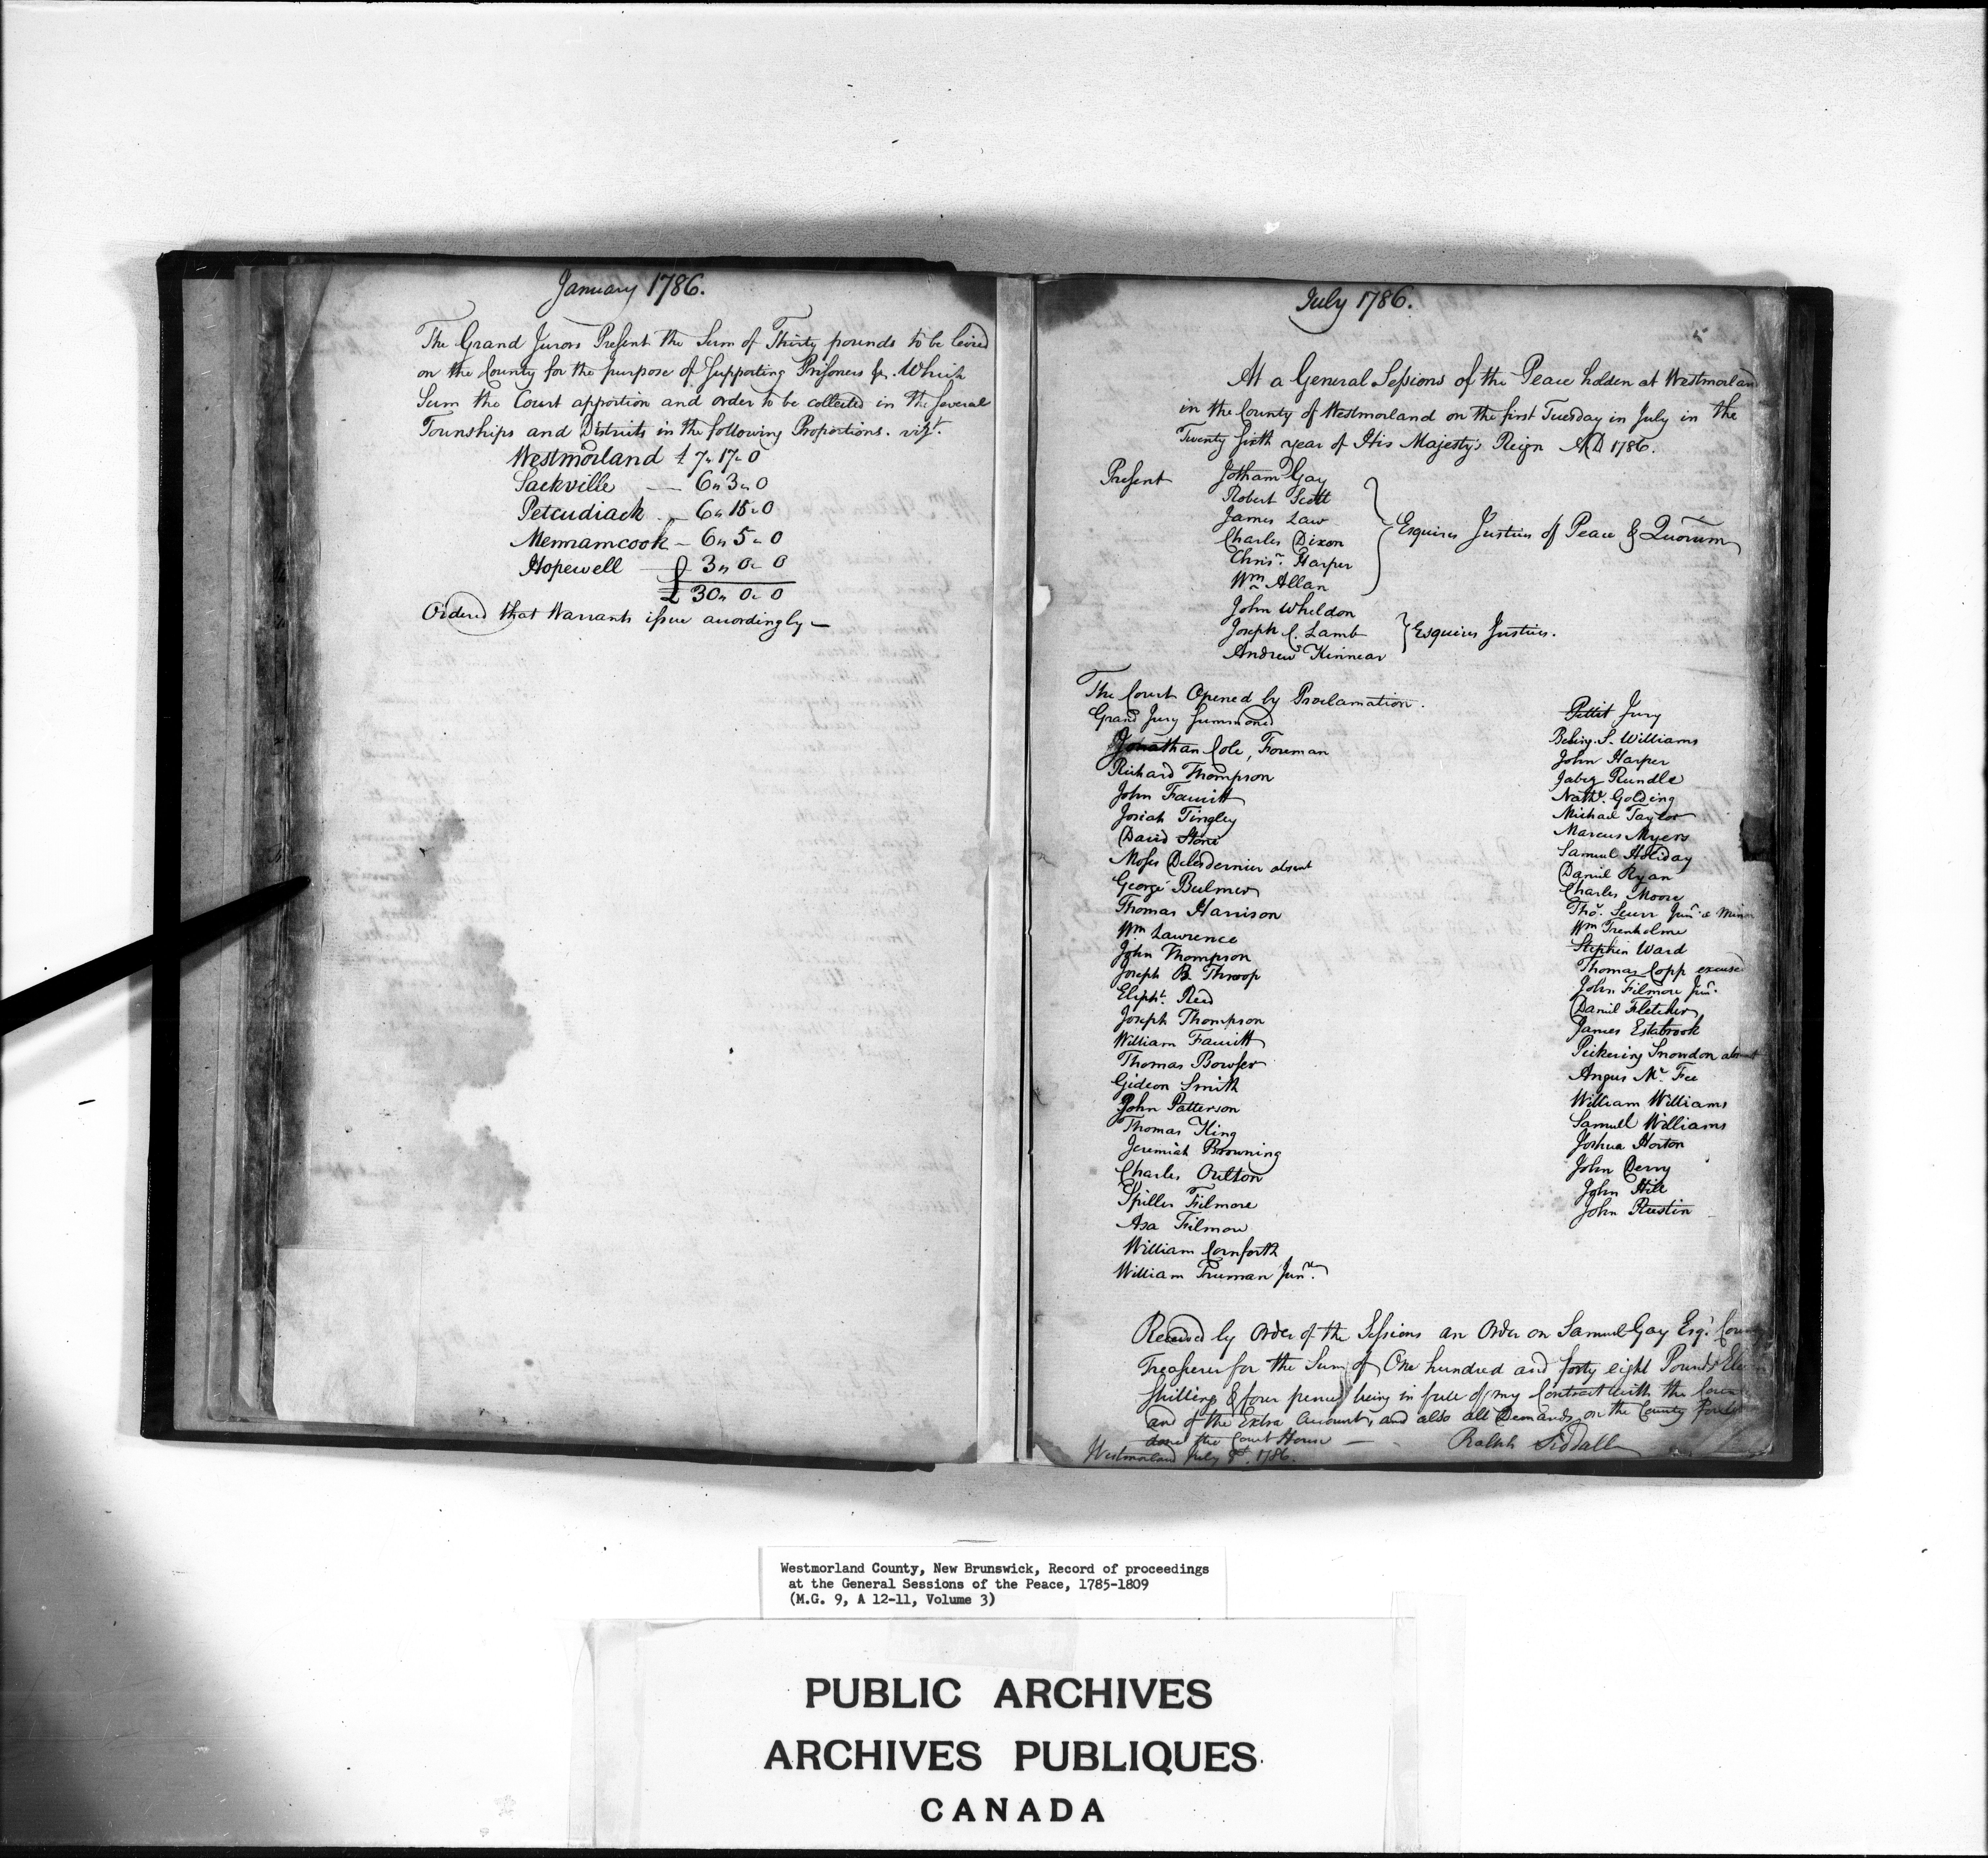 January 1786.
The Grand Jurors Present the Sum of Thirty pounds to be levied
on the County for the purpose of Supporting Prisoners &c. Which
Sum the Court apportion and order to be collected in the several
Townships and Districts in the following Proportions. vizt.
Westmorland £ 7,, 17,, 0
Sackville — 6,, 3,, 0
Petcudiack „ 6,, 15,, 0
Memramcook – 6,, 5,, 0
Hopewell — 3,, 0,, 0
£ 30,, 0,, 0
Ordered that Warrants issue accordingly —
July 1786.
5
At a General Sessions of the Peace holden at Westmorland
in the County of Westmorland on the first Tuesday in July in the
Twenty sixth year of His Majesty's Reign AD 1786.
Present Jotham Gay
Robert Scott
James Law
Charles Dixon
Esquires Justices of Peace & Quorum
Chrisr. Harper
Wm Allan
John Wheldon
Joseph C. Lamb
Esquires Justices.
Andrew Kinnear
The Court Opened by Proclamation.
Grand Jury Summoned
Jonathan Cole, Foreman
Richard Thompson
John Fawcitt
Josiah Tingley
David Stone
Moses Delesdernier absent
George Bulmer
Thomas Harrison
Wm Lawrence
John Thompson
Joseph B Throop
Elipht. Reed
Joseph Thompson
William Fawcitt
Thomas Bowser
Gideon Smith
John Patterson
Thomas King
Jeremiah Browning
Charles Oulton
Spiller Filmore
Asa Filmore
William Cornforth
William Truman Junr.
Pettit Jury
S. Williams
John Harper
Jabez Rundle
Nathl. Golding
Michael Taylor
Marcus Myers
Samuel Holiday
Daniel Ryan
Charles Moore
Thos. Scurr Junr. a Minor
Wm Trenholme
Stephen Ward
Thomas Copp excused
John Filmore Junr.
Daniel Fletcher
James Estabrook
Pickering Snowdon absent
Angus Mc. Fee
William Williams
Samuell Williams
Joshua Horton
John Derry
John Hill
John
Received by Order of the Sessions an Order on Samuel Gay Esqr. County
Treasurer for the Sum of One hundred and forty eight Pounds
Shillings & four pence being in full of my Contract with the
and of the Extra Accounts and also all Demands on the County for
done the Court House — Ralph Siddall
Westmorland July 1786.
Westmorland County, New Brunswick, Record of proceedings
at the General Sessions of the Peace, 1785-1809
(M.G. 9, A 12-11, Volume 3)
PUBLIC ARCHIVES
ARCHIVES PUBLIQUES
CANADA